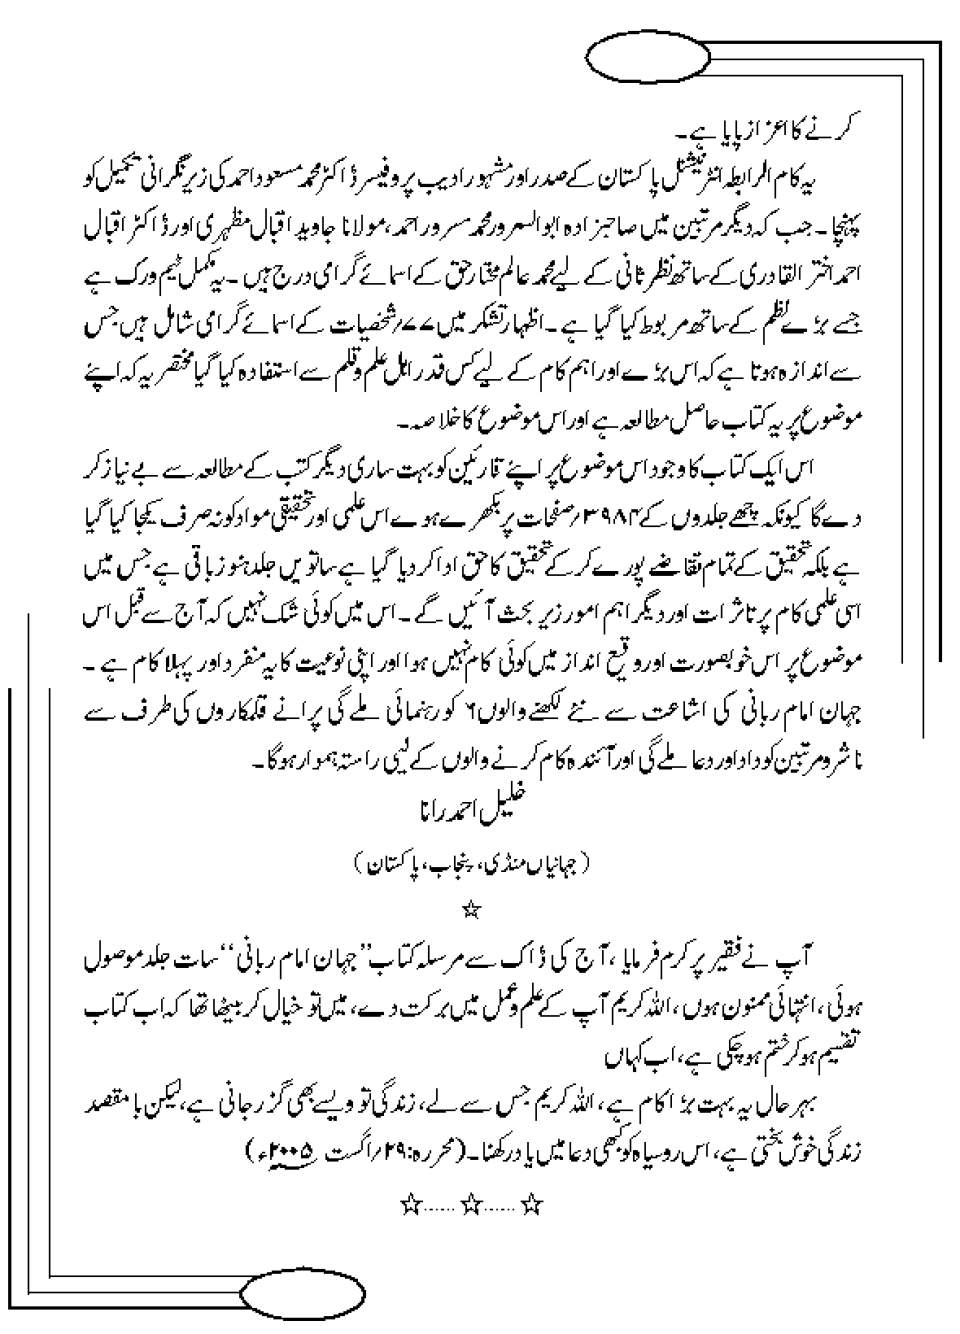 کرنے کا اعزاز پایا ہے۔
یہ کام الرابطہ انٹرنیشنل پاکستان کے صدر اور مشہور ادیب پروفیسر ڈاکٹر محمد مسعود احمد کی زیر نگرانی تکمیل کو
پہنچا۔ جب کہ دیگر مرتبین میں صاحبزادہ ابوالسرور محمد مسرور احمد، مولانا جاوید اقبال مظہری اور ڈاکٹر اقبال
احمد اختر القادری کے ساتھ نظر ثانی کے لیے محمد عالم مختار حق کے اسمائے گرامی درج ہیں۔ یہ مکمل ٹیم ورک ہے
جسے بڑے نظم کے ساتھ مربوط کیا گیا ہے۔ اظہار تشکر میں ۷۷؍ شخصیات کے اسمائے گرامی شامل ہیں جس
سے اندازہ ہوتا ہے کہ اس بڑے اور اہم کام کے لیے کس قدر اہل علم و قلم سے استفادہ کیا گیا مختصر یہ کہ اپنے
موضوع پر یہ کتاب حاصل مطالعہ ہے اور اس موضوع کا خلاصہ۔
اس ایک کتاب کا وجود اس موضوع پر اپنے قارئین کو بہت ساری دیگر کتب کے مطالعہ سے بے نیاز کر
دے گا کیونکہ چھے جلدوں کے ۳۹۸۴؍ صفحات پر بکھرے ہوے اس علمی اور تحقیقی مواد کو نہ صرف یکجا کیا گیا
ہے بلکہ تحقیق کے تمام تقاضے پورے کر کے تحقیق کا حق ادا کر دیا گیا ہے ساتویں جلد ہنوز باقی ہے جس میں
اسی علمی کام پر تاثرات اور دیگر اہم امور زیر بحث آئیں گے۔ اس میں کوئی شک نہیں کہ آج سے قبل اس
موضوع پر اس خوبصورت اور وقیع انداز میں کوئی کام نہیں ہوا اور اپنی نوعیت کا یہ منفرد اور پہلا کام ہے۔
جہان امام ربانی کی اشاعت سے نئے لکھنے والوں۶ کو رہنمائی ملے گی پرانے قلمکاروں کی طرف سے
ناشر و مرتبین کو داد اور دعا ملے گی اور آئندہ کام کرنے والوں کے لیی راستہ ہموار ہوگا۔
خلیل احمد رانا
(جہانیاں منڈی، پنجاب، پاکستان)
☆
آپ نے فقیر پر کرم فرمایا، آج کی ڈاک سے مرسلہ کتاب ”جہان امام ربانی“ سات جلد موصول
ہوئی، انتہائی ممنون ہوں، اللہ کریم آپ کے علم و عمل میں برکت دے، میں تو خیال کر بیٹھا تھا کہ اب کتاب
تقسیم ہو کر ختم ہو چکی ہے، اب کہاں
بہر حال یہ بہت بڑا کام ہے، اللہ کریم جس سے لے، زندگی تو ویسے بھی گزر جانی ہے، لیکن با مقصد
زندگی خوش بختی ہے، اس روسیاہ کو بھی دعا میں یاد رکھنا۔ (محررہ: ۲۹؍ اگست ۲۰۰۵ء)
☆......☆......☆